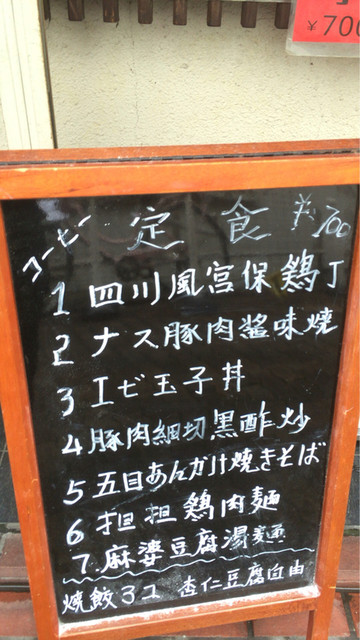 ¥700
コーヒー 定食 ¥700
1 四川風宮保鶏丁
2 ナス豚肉醬味焼
3 エビ玉子丼
4 豚肉細切黒酢炒
5 五目あんかけ焼きそば
6 担担鶏肉麺
7.麻婆豆腐湯麺
焼餃3コ 杏仁豆腐自由